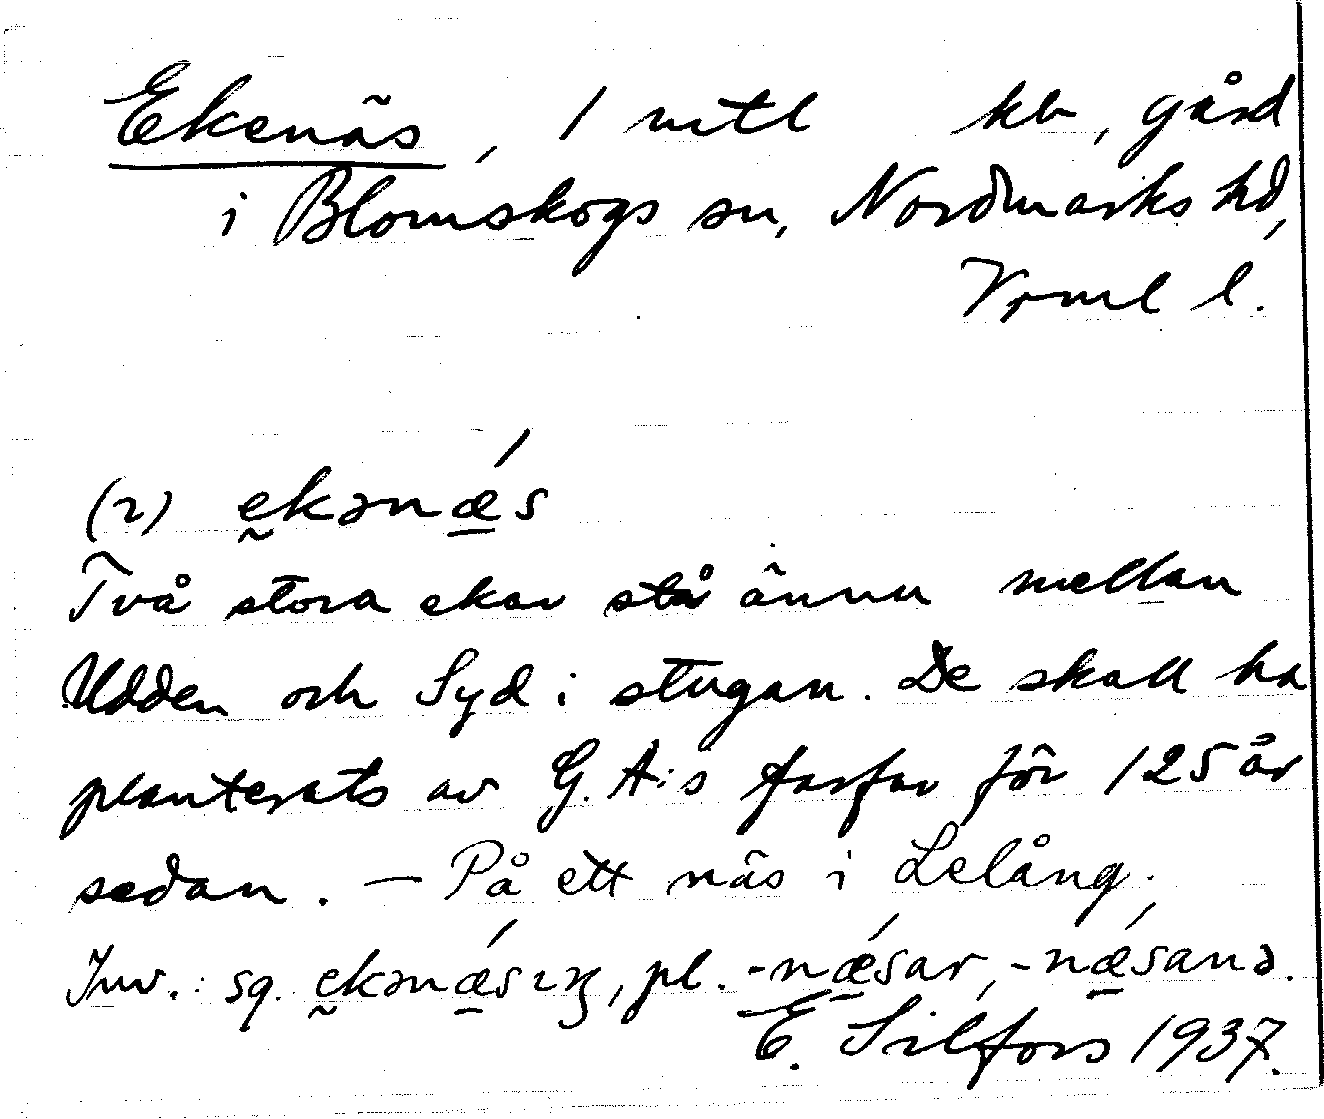 Ekenäs, 1 mtl kr, gård
i Blomskogs sn, Nordmarks hd,
Vrml l.
(2) e̬kənǽ̱s
Två stora ekar stå ännu mellan
Udden och Syd i stugan. De skall ha
planterats av G. A:s farfar för 125 år
sedan. — På ett näs i Lelång.
Inv.: sg. e̬kənǽ̱sıŋ, pl. -nǽ̱sar, -nǽ̱sanə.
E. Silfors 1937.